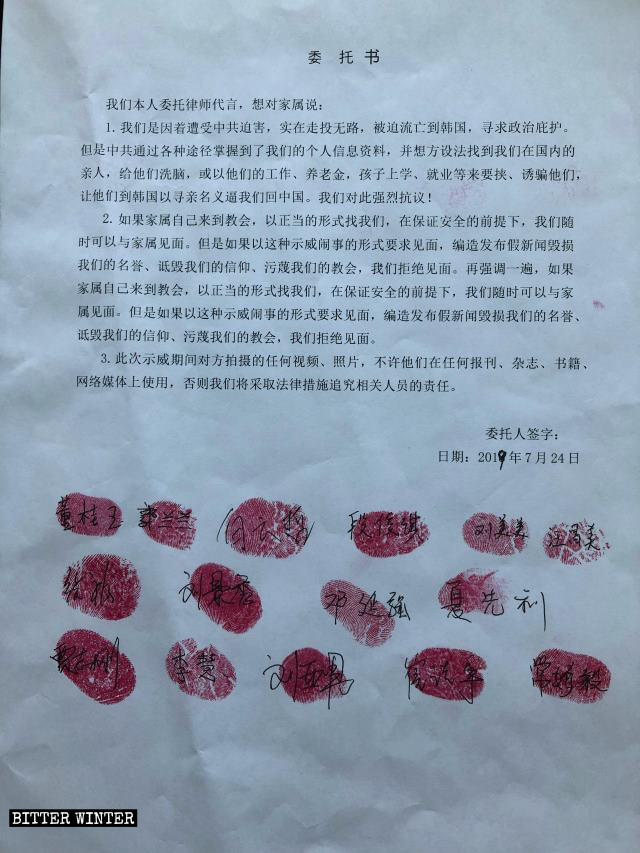 委 托 书
我们本人委托律师代言，想对家属说：
1. 我们是因着遭受中共迫害，实在走投无路，被迫流亡到韩国，寻求政治庇护。
但是中共通过各种途径掌握到了我们的个人信息资料，并想方设法找到我们在国内的
亲人，给他们洗脑，或以他们的工作、养老金，孩子上学、就业等来要挟、诱骗他们，
让他们到韩国以寻亲名义逼我们回中国。我们对此强烈抗议！
2. 如果家属自己来到教会，以正当的形式找我们，在保证安全的前提下，我们随
时可以与家属见面。但是如果以这种示威闹事的形式要求见面，编造发布假新闻毁损
我们的名誉、诋毁我们的信仰、污蔑我们的教会，我们拒绝见面。再强调一遍，如果
家属自己来到教会，以正当的形式找我们，在保证安全的前提下，我们随时可以与家
属见面。但是如果以这种示威闹事的形式要求见面，编造发布假新闻毁损我们的名誉、
诋毁我们的信仰、污蔑我们的教会，我们拒绝见面。
3. 此次示威期间对方拍摄的任何视频、照片，不许他们在任何报刊、杂志、书籍、
网络媒体上使用，否则我们将采取法律措施追究相关人员的责任。
委托人签字：
日期：2019年7月24日
董桂玉 郭兰兰 刘美美
邓延强 夏先利
李慧
BITTER WINTER